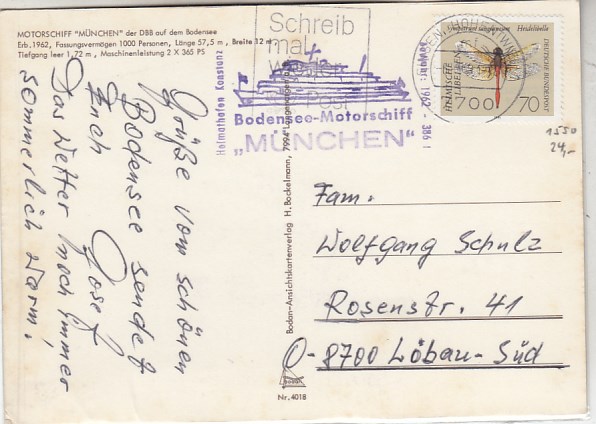 MOTORSCHIFF "MÜNCHEN" der DBB auf dem Bodensee
Erb.1962, Fassungsvermögen 1000 Personen, Länge 57,5 m, Breite 12 m
Tiefgang leer 1,72 m, Maschinenleistung 2 X 365 PS
Grüße vom schönen
Bodensee sendet
Euch Josef
Das Wetter noch immer
sommerlich warm.
Schreib
mal
Post
Heimathafen Konstanz
Bodensee-Motorschiff
„MÜNCHEN"
1962 - 386
Heidelibelle
DEUTSCHE BUNDESPOST
70
700
1550
24,-
Bodan-Ansichtskartenverlag H. Bockelmann, 7994 Langenargen
bodan
Nr. 4018
Fam.
Wolfgang Schulz
Rosenstr. 41
O-8700 Löbau-Süd